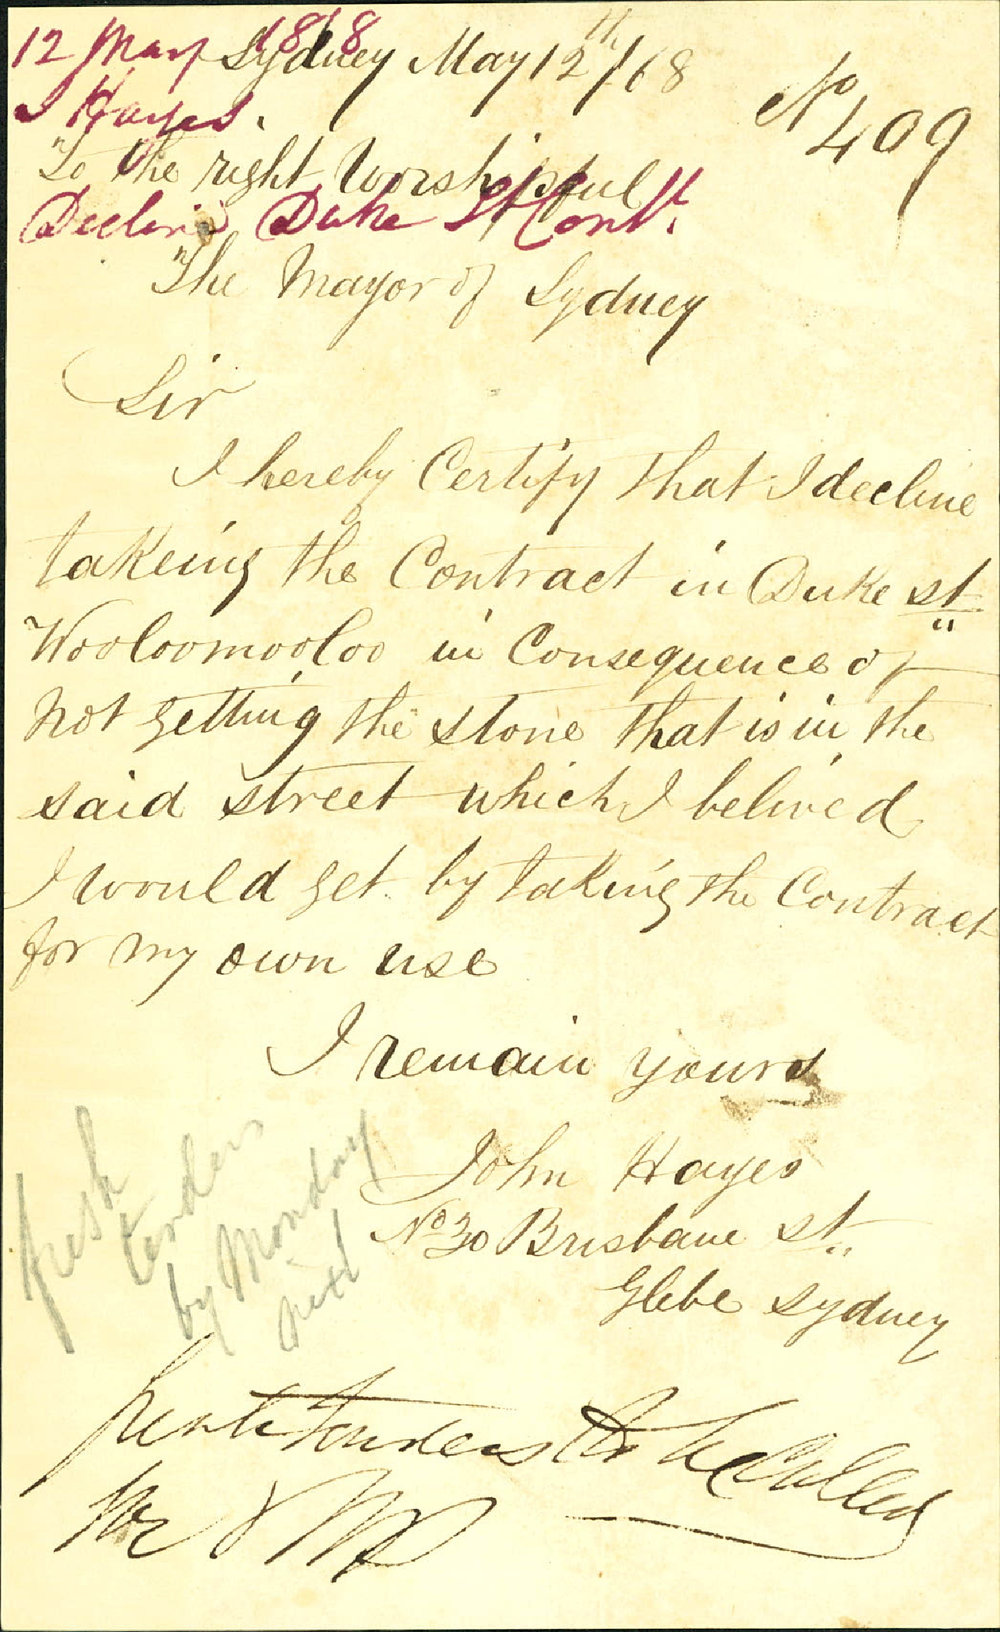 12 May 1868
Sydney May 12th/68
No 409
J Hayes.
To the right Worshipful
Decline Duke St Contt.
The Mayor of Sydney
Sir
I hereby Certify that I decline
takeing the Contract in Duke st
Wooloomooloo in Consequence of
not getting the stone that is in the
said street which I belived
I would get by taking the Contract
for my own use
I remain yours
John Hayes
No 30 Brisbane st
Glebe Sydney
fresh
tenders
by Monday
next
fresh Tenders to be Called